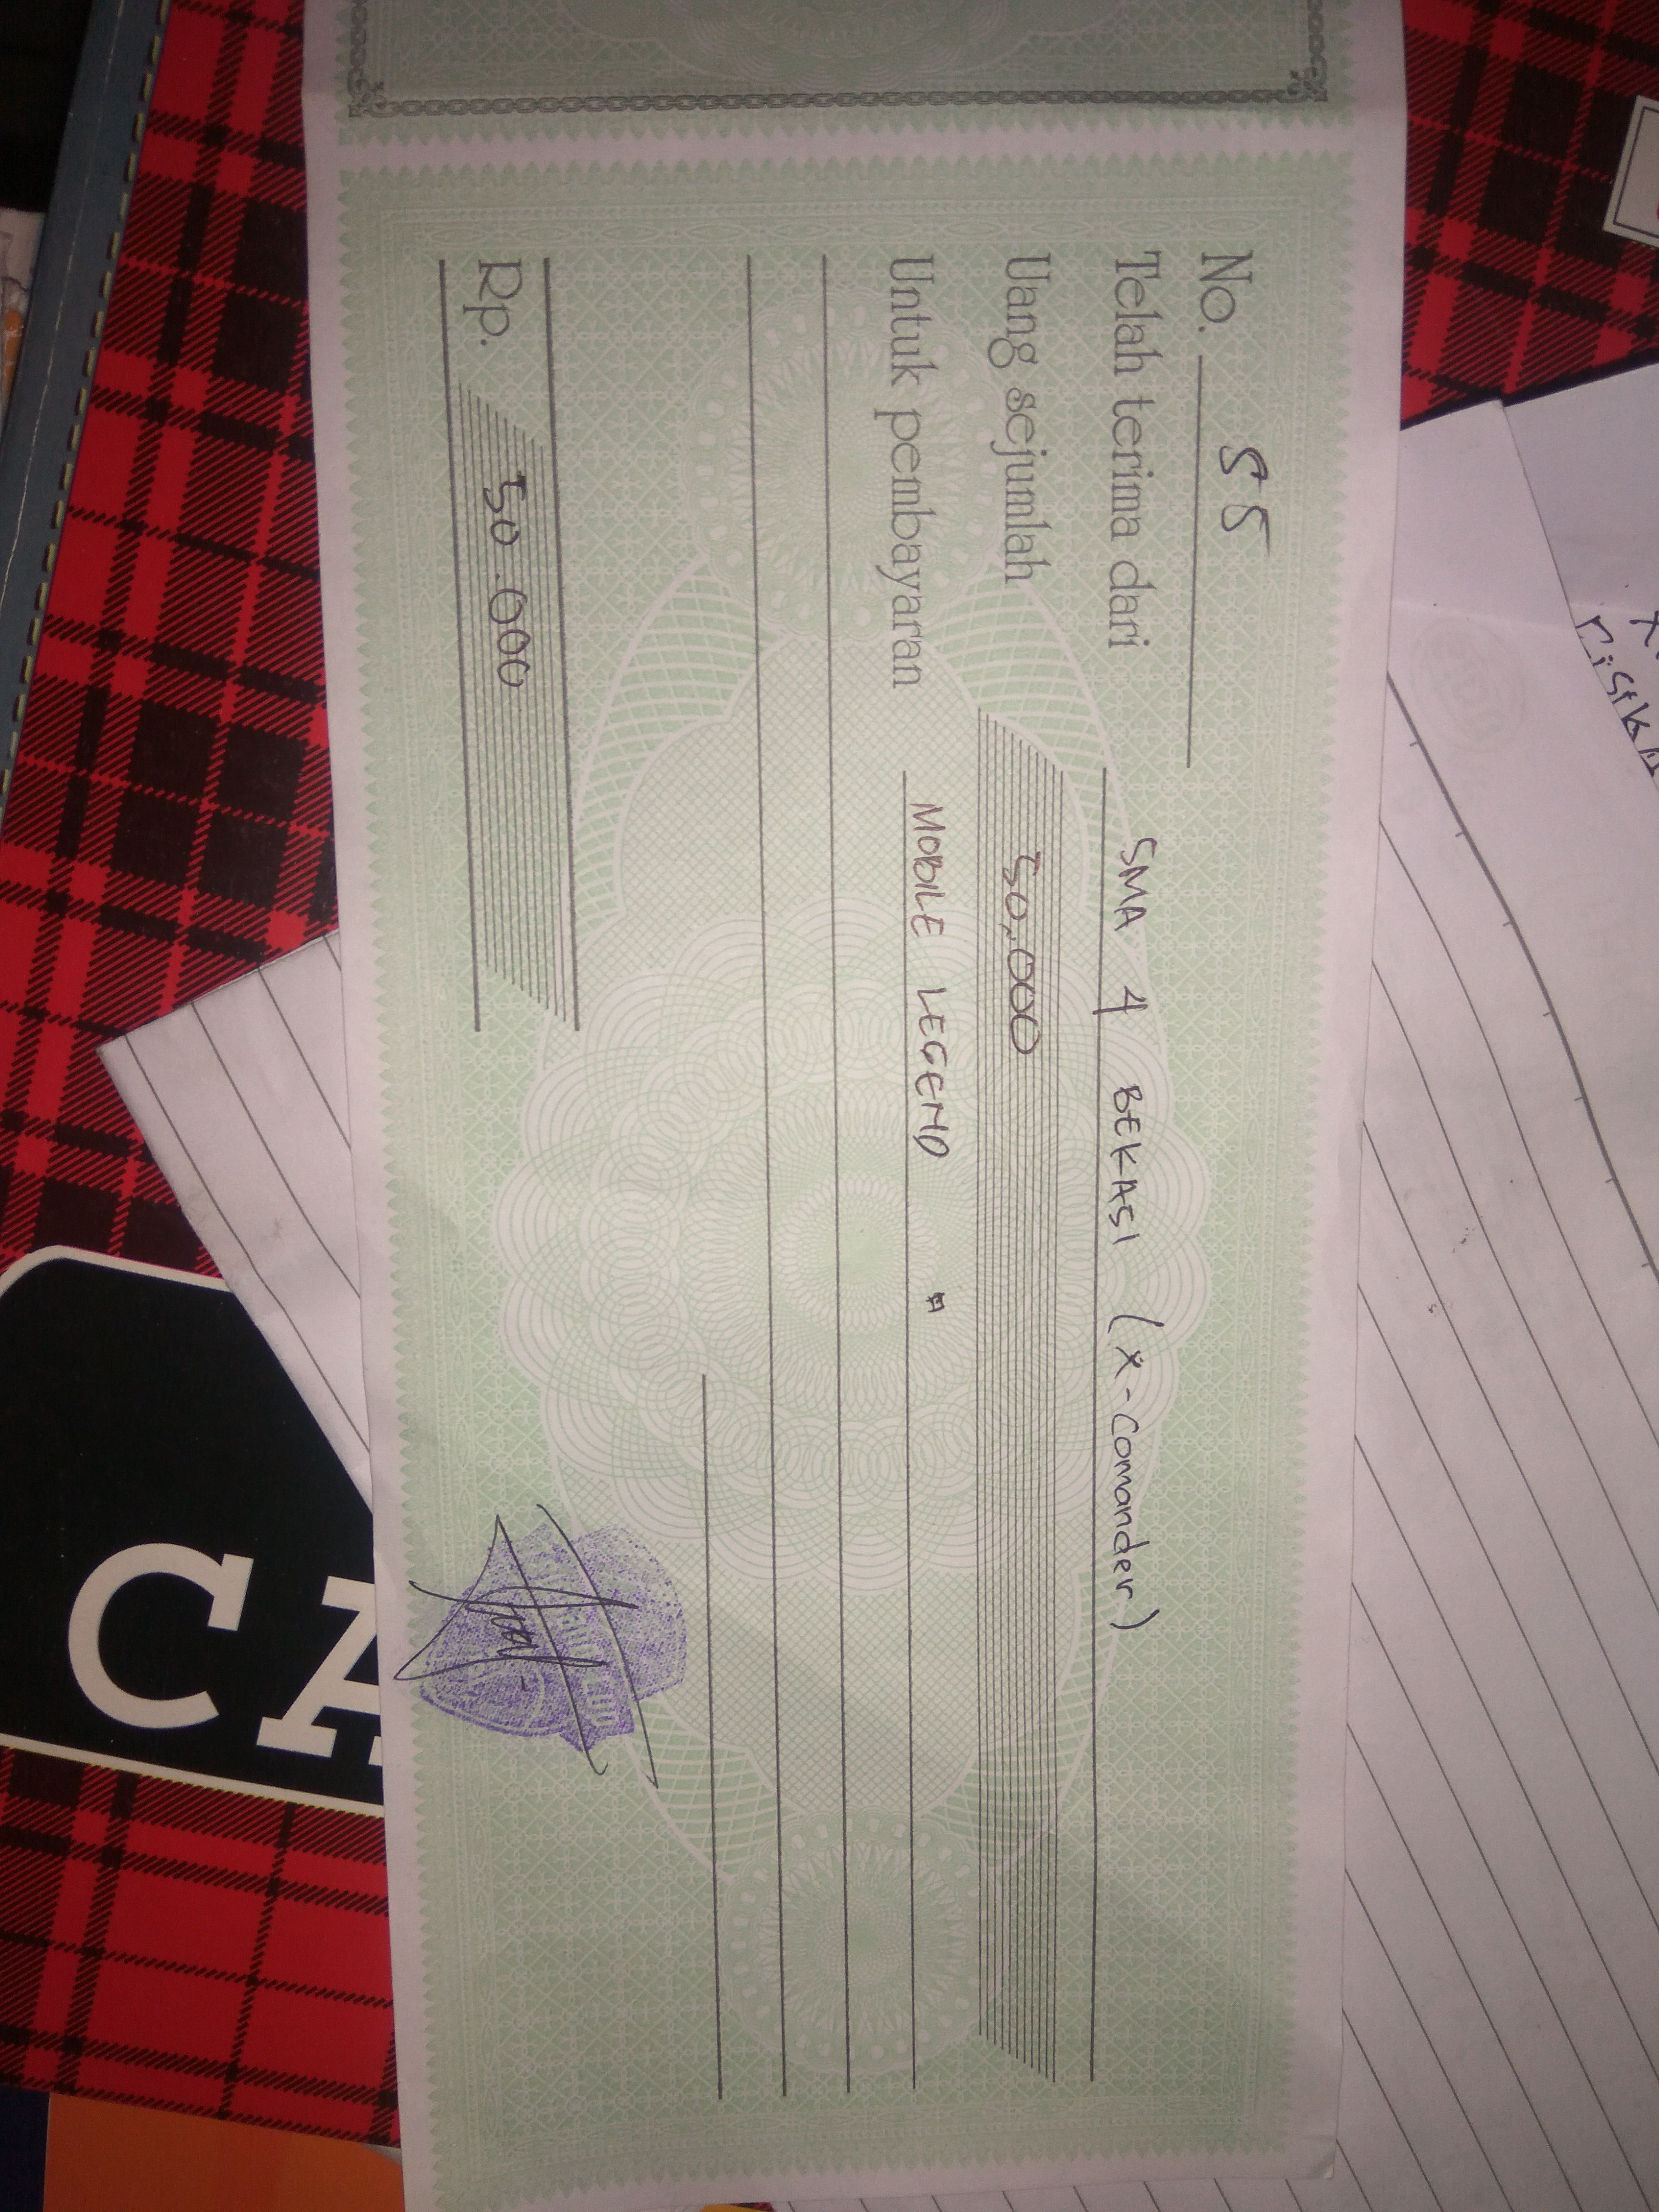 No. 55
Telah terima dari SMA 4 BEKASI (X-Comander)
Uang sejumlah 50.000
Untuk pembayaran MOBILE LEGEND
Rp. 50.000
CA